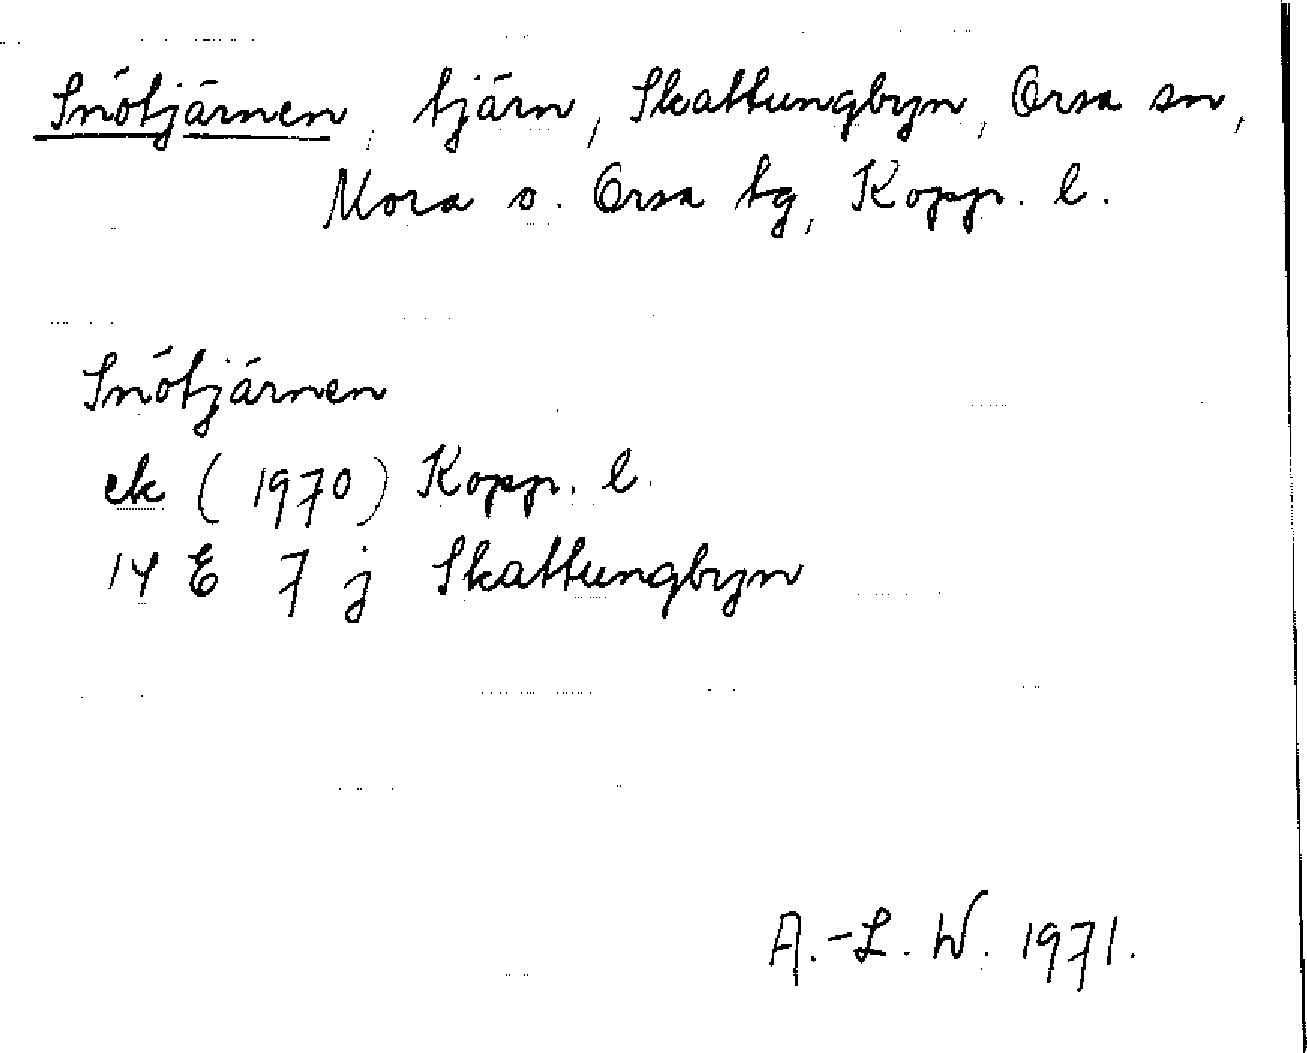 Snötjärnen, tjärn, Skattungbyn, Orsa sn,
Mora o. Orsa tg, Kopp. l.
Snötjärnen
ek (1970) Kopp. l.
14 E 7 j Skattungbyn
A.-L. W. 1971.